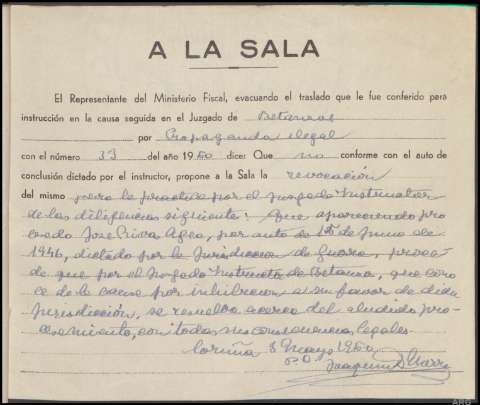 A LA SALA
El Representante del Ministerio Fiscal, evacuando el traslado que le fue conferido para
instrucción en la causa seguida en el Juzgado de Betanzos
por Propaganda ilegal
con el número 33 del año 1950 dice: Que no conforme con el auto de
conclusión dictado por el instructor, propone a Sala la revocación
del mismo para la practica por el juzgado Instructor
de las diligencias siguiente: Que apareciendo pro
cesado José por auto de 15 de Junio de
1946, dictado por la Jurisdiccion de Guerra, proce
de que por el Juzgado Instructor de Betanzos, que cono
ce de la causa por inhibicion a su favor de dicha
jurisdiccion, se resuelva acerca del aludido pro-
cesamiento, con todas sus consecuencias legales.
Coruña 8 Mayo 1950
P.D.
Joaquin
ARG